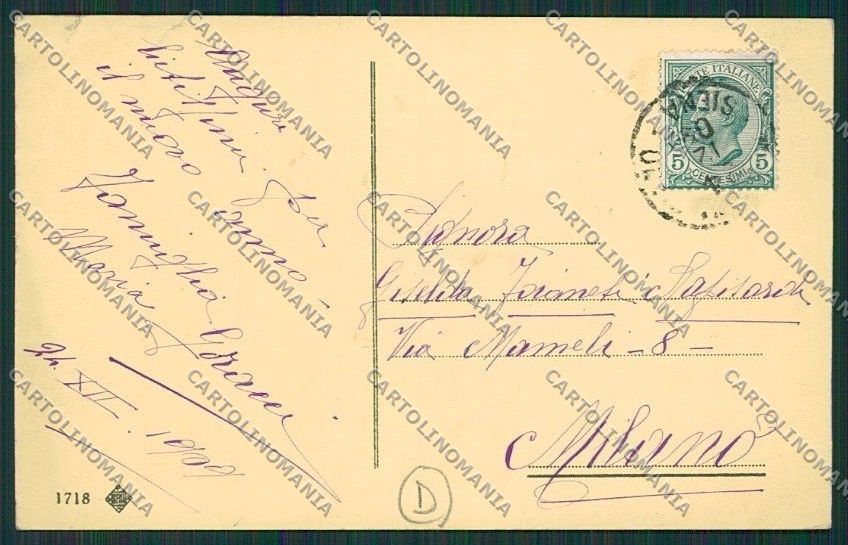 Auguri
lietissimi per
il nuovo anno -
Famiglia Gracci
Maria
24. XII. 1909
1718
POSTE ITALIANE
5 5
CENTESIMI
SIENA
Signora
Giselda
Via Mameli - 8 -
Milano
D
CARTOLINOMANIA